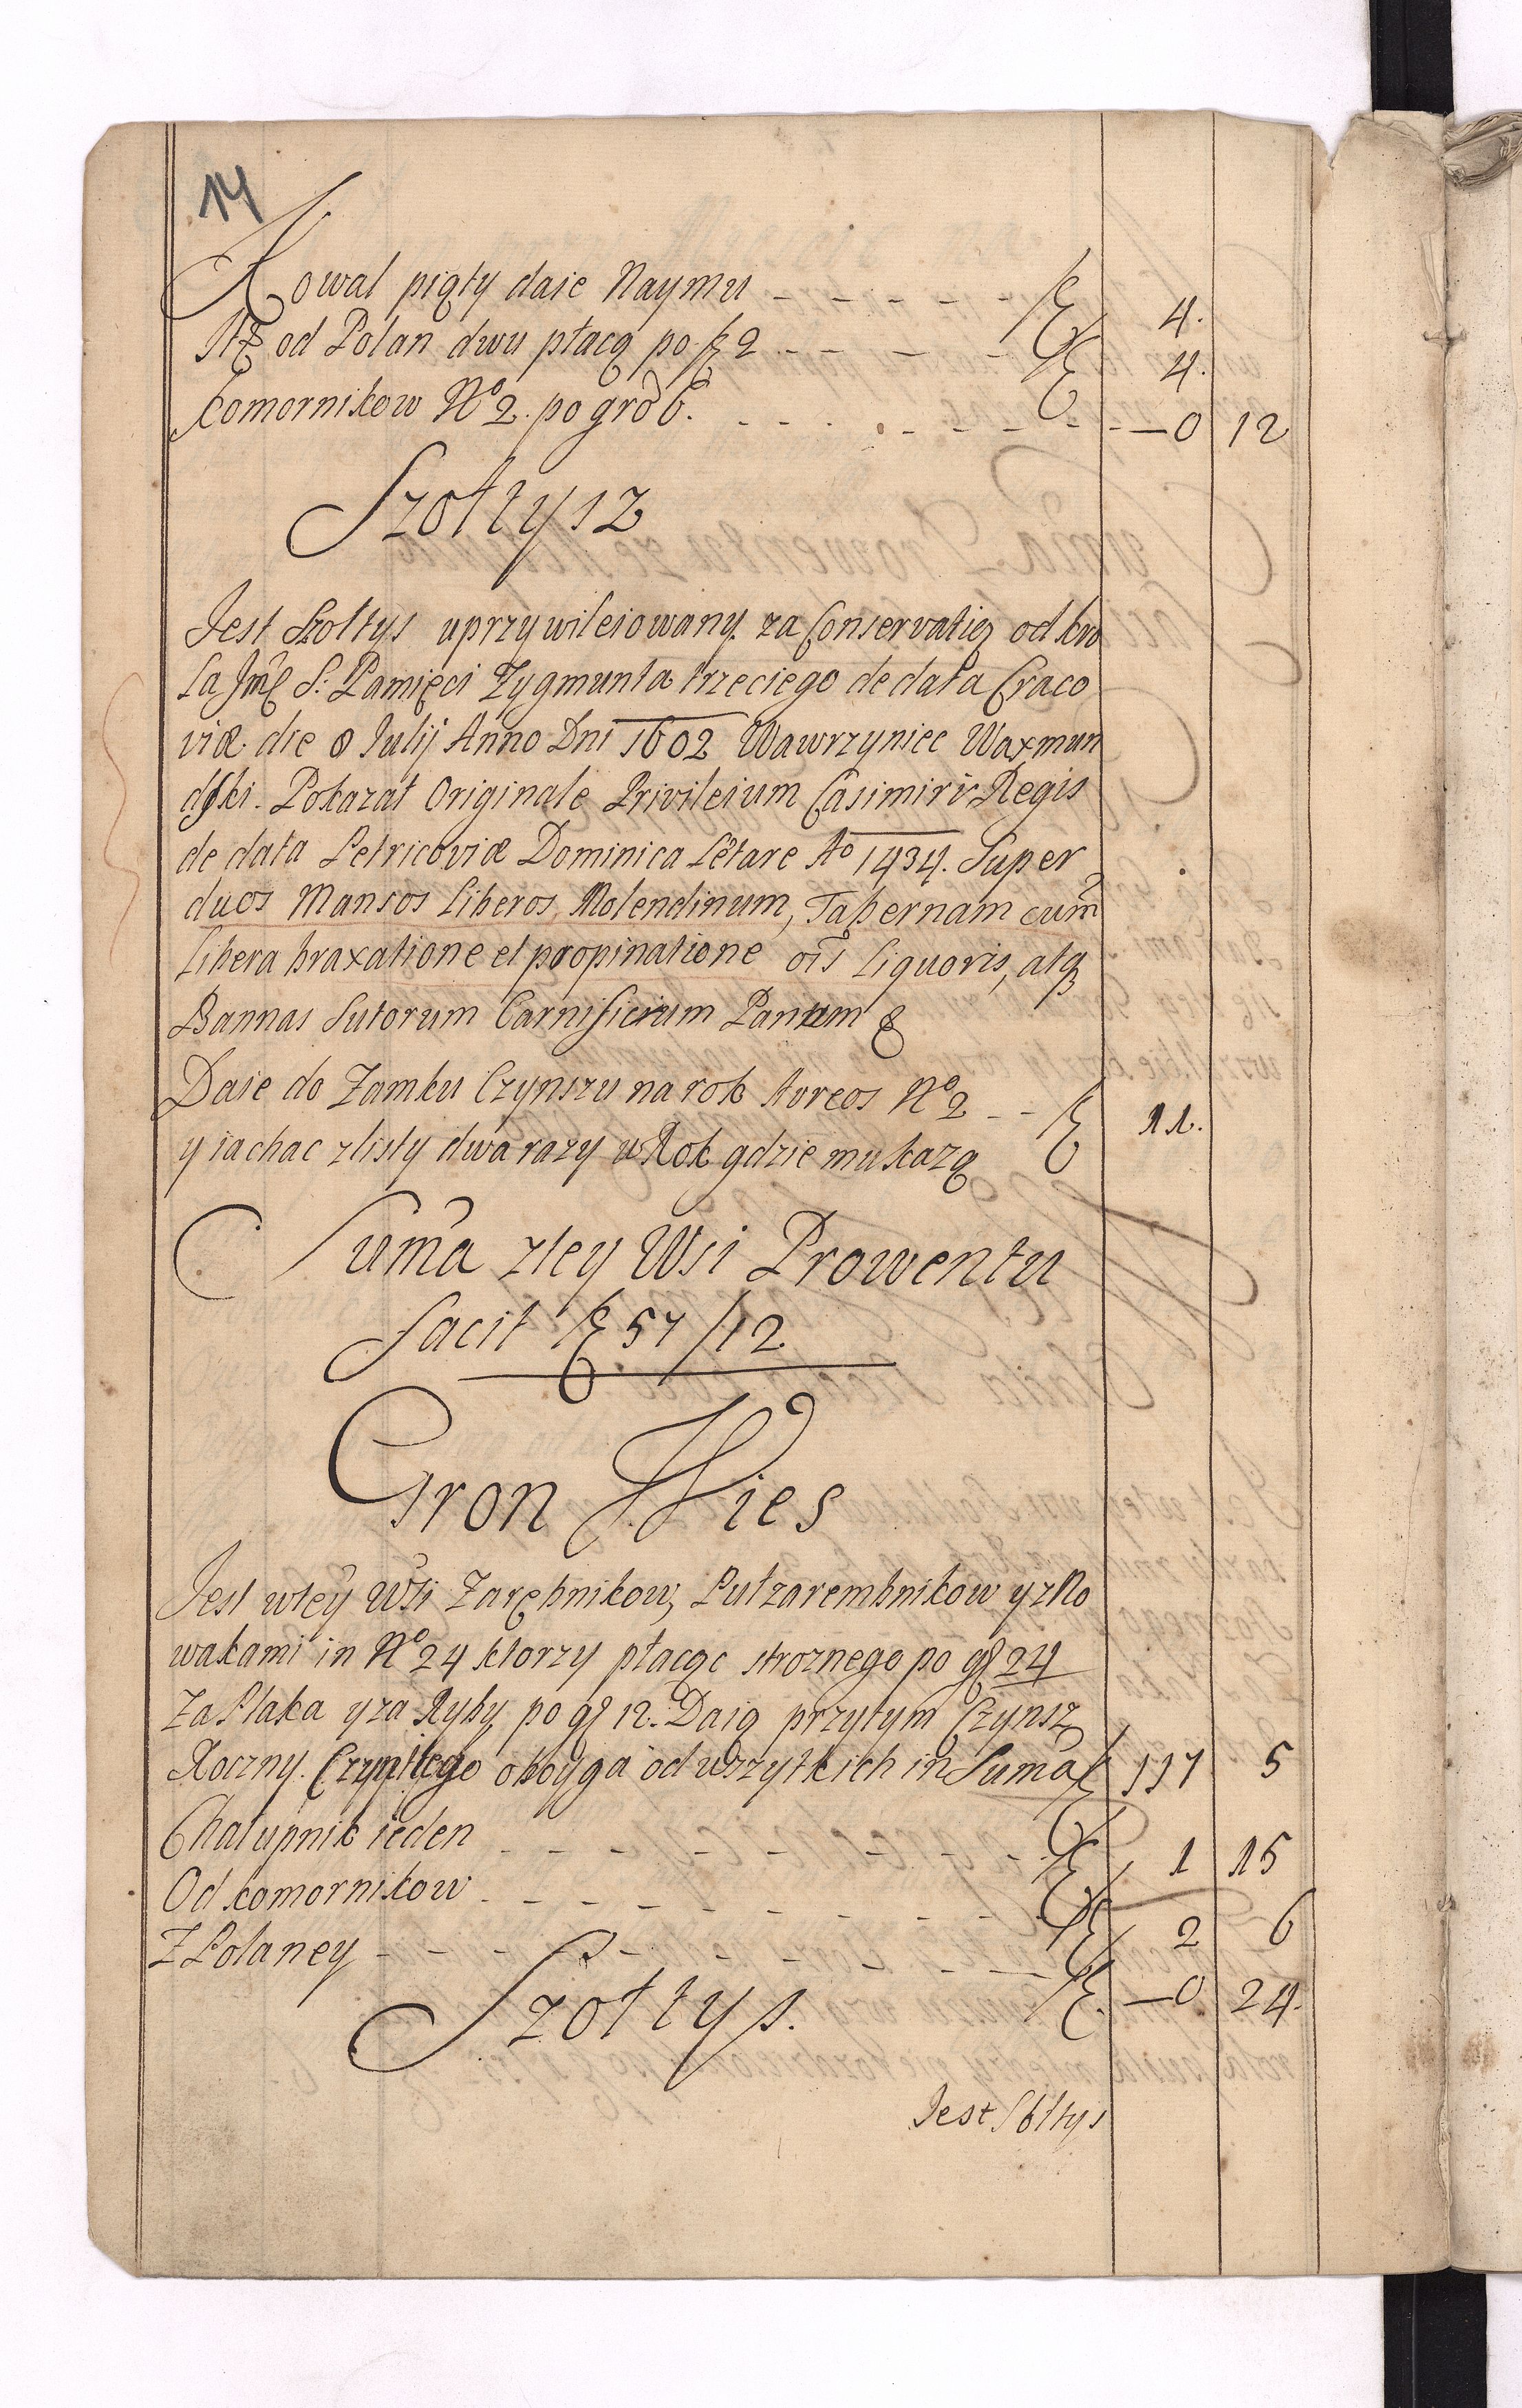 14
Kowal piąty daie Naymu - - - - - - zł 4.
Itt od Polan dwu płacą po zł 2 - - - - - zł 4.
Komornikow No 2. po gro 6. - - - - - - - - —0 12
Szołtysz
Jest Szołtys uprzywileiowany za Conservatią od kro
la Jmć S. Pamięci Zygmunta trzeciego de data Craco
viæ die 8 Julij Anno Dni 1602 Wawrzyniec Waxmun
dzki. Pokazał Originale Privileium Casimiri Regis
de data Petricoviæ Dominica Letare Ao 1434. Super
duos Mansos Liberos, Molendinum, Tabernam cum
Libera braxatione et propinatione ois Liquoris, atq
Bannas Sutorum Carnificium Panum &
Daie do Zamku Czynszu na rok Aureos No 2 - - zł 11.
y iachac z listy dwa razy w Rok gdzie mu kazą
Suma z tey Wsi Prowentu
Facit zł 57/12
Gron Wies
Jest w tey Wsi Zarębnikow, Pułzarembnikow y z No
wakami in No 24 ktorzy płacąc stroznego po gr 24
Za Ptaka y za Ryby po gr 12. Daią przytym Czynsz
Roczny. oboyga od wszytkich in Suma zł 117 5
Chałupnik ieden - - - - - - - - zł 1 15
Od komornikow - - - - - - - - zł 2 6
Z Polaney - - - - - - - - zł —0 24.
Szołtys.
Jest Sołtys